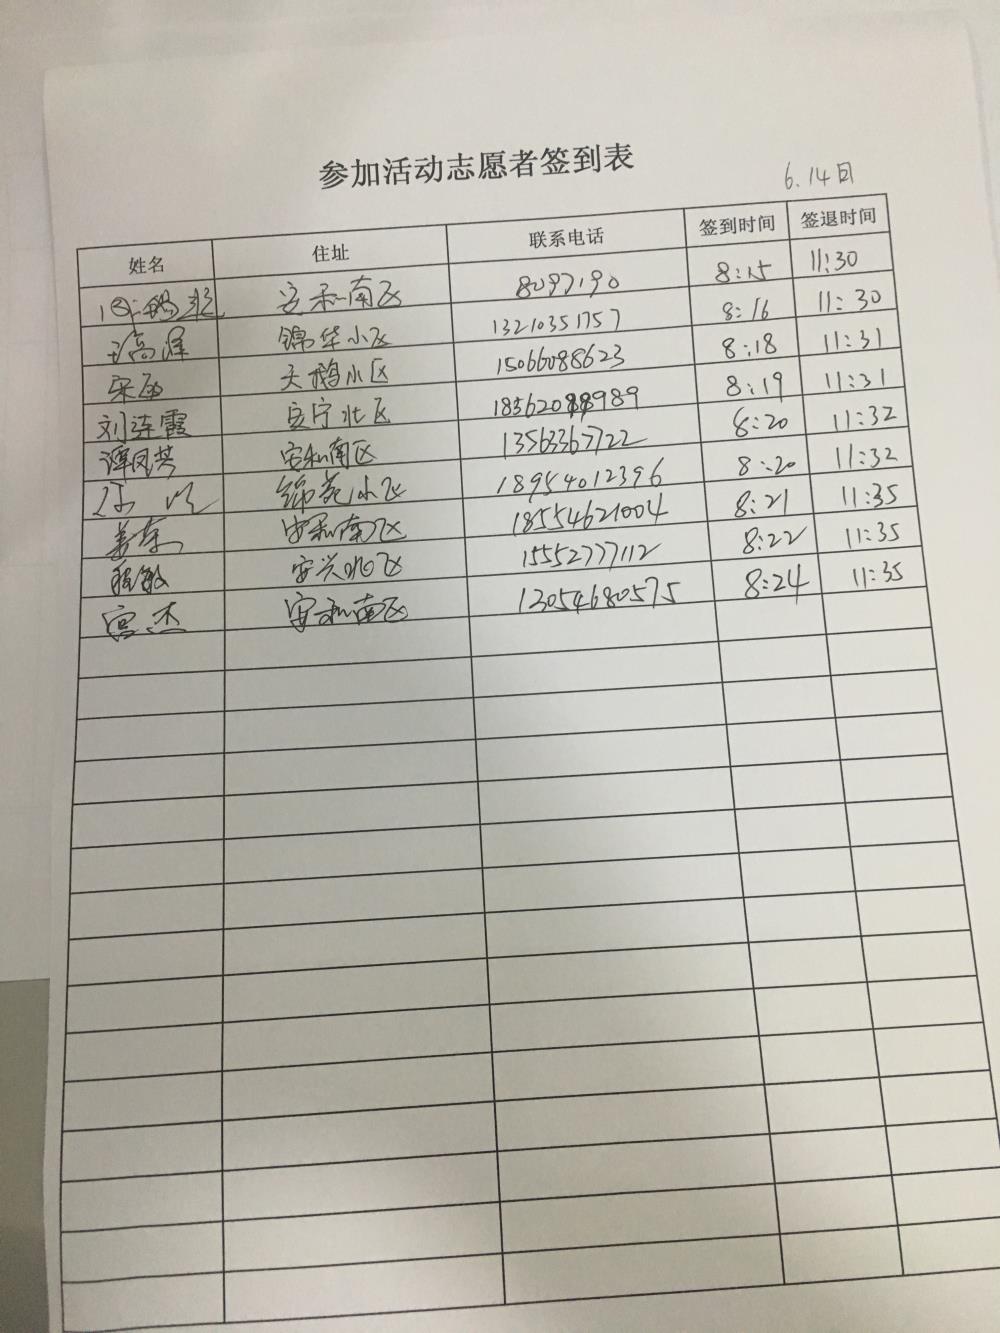 参加活动志愿者签到表
6.14日
姓名 住址 联系电话 签到时间 签退时间
安和南区 8097190 8:15 11:30
王高峰 锦华小区 13210351757 8:16 11:30
宋 天鹅小区 15066088623 8:18 11:31
刘连霞 安宁北区 18562088989 8:19 11:31
谭凤英 安和南区 13563367722 8:20 11:32
锦苑小区 18954012396 8:20 11:32
姜东 安和南区 18554621004 8:21 11:35
程敏 安兴北区 15552777112 8:22 11:35
宫杰 安和南区 13054680575 8:24 11:35